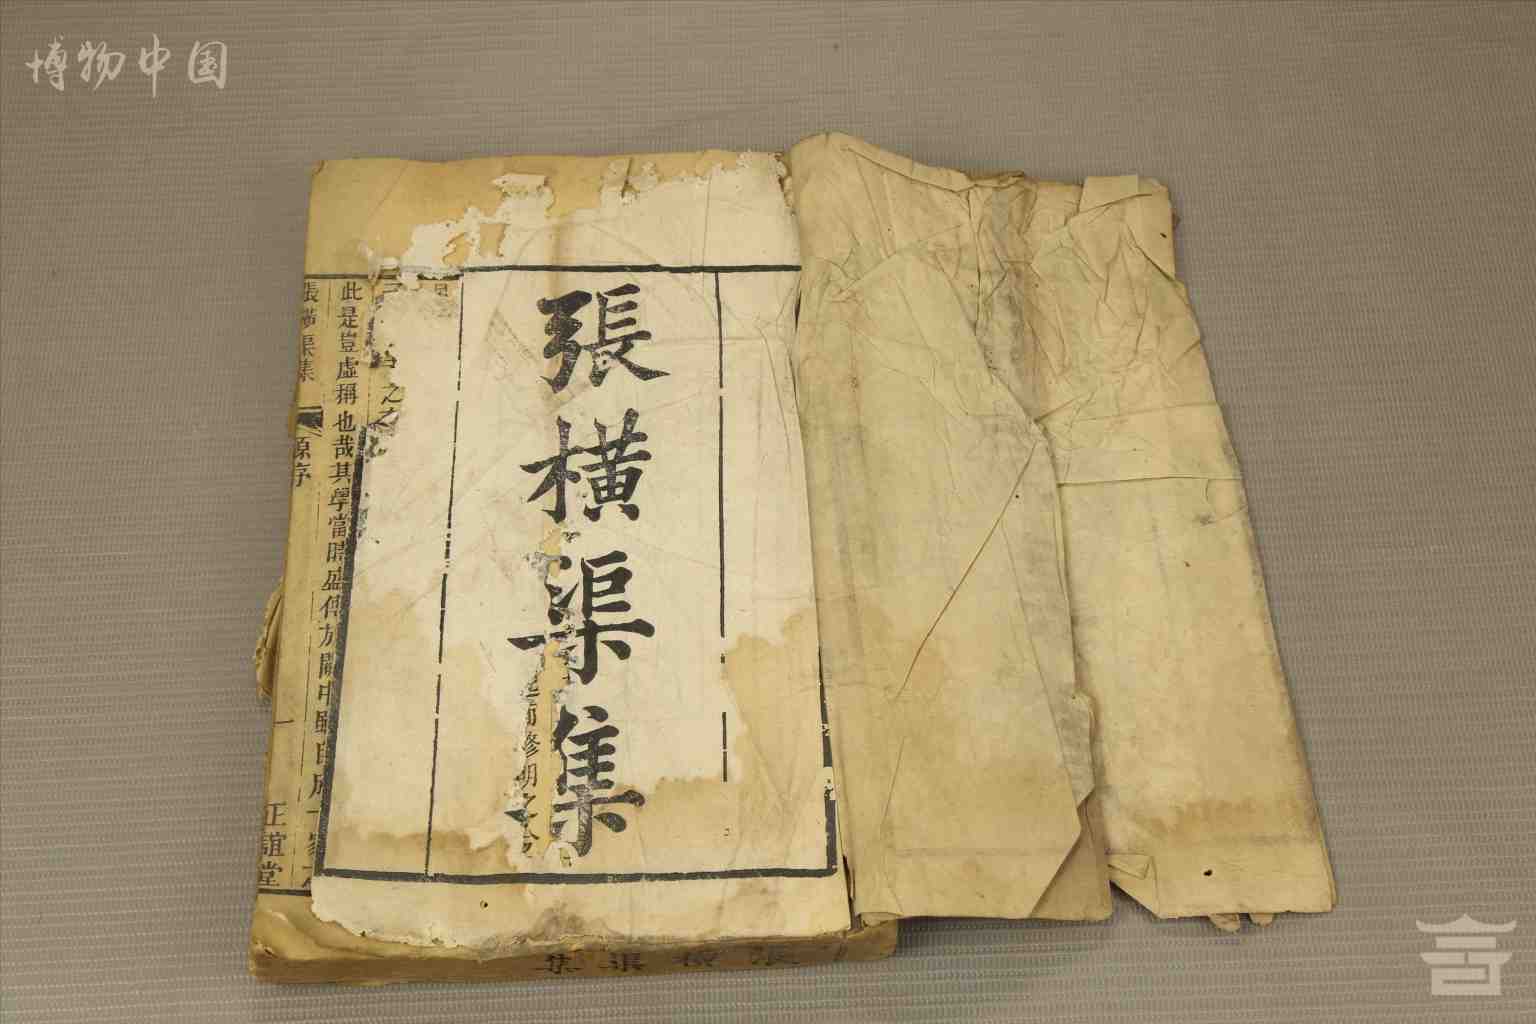 博物中国
張橫渠集
此是豈虛稱也哉其學當時盛傳於關中雖自成一家
之
修明之
張橫渠集
原序
一
正誼堂
張橫渠集